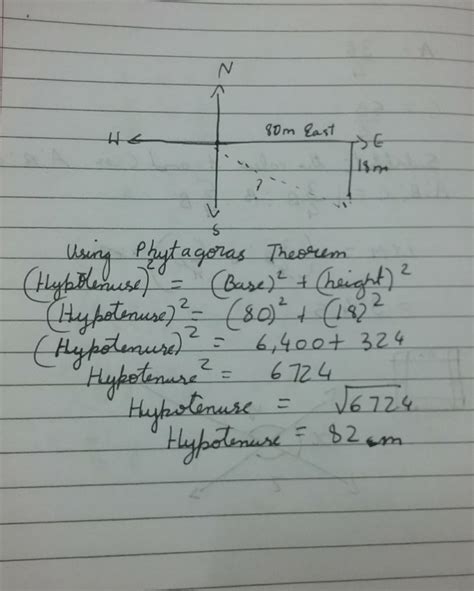 N
80m East
W E
18m
?
S
Using Phytagoras Theorem
(Hypotenuse)² = (Base)² + (height)²
(Hypotenuse)² = (80)² + (18)²
(Hypotenuse)² = 6,400 + 324
Hypotenuse² = 6724
Hypotenuse = √6724
Hypotenuse = 82 m